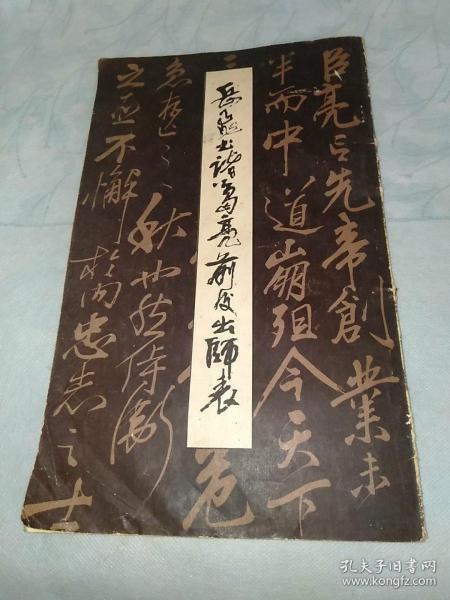 臣亮言先帝創業未
半而中道崩殂今天下
三
危
急存亡之秋也然侍衛
之臣不懈於內忠志之士
岳飛书諸葛亮前后出師表
孔夫子旧书网
www.kongfz.com